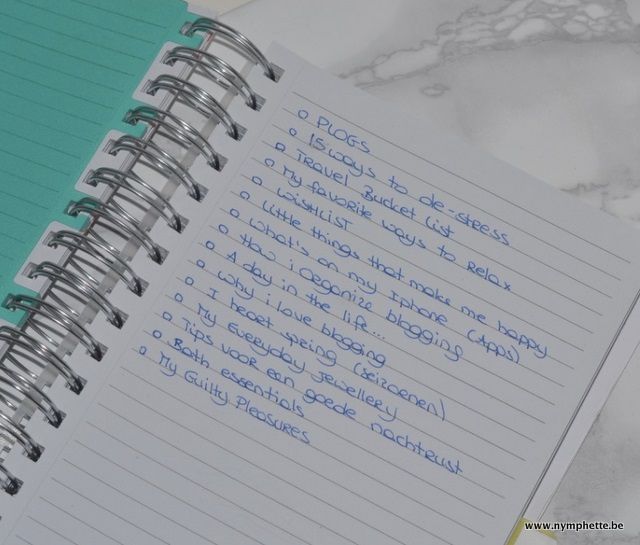 o PLOGS
o 15 ways to de-stress
o Travel Bucket list
o My favorite ways to Relax
o WISHLIST
o Little things that make me happy
o What's on my Iphone (Apps)
o How i Organize blogging
o A day in the life...
o Why i love blogging
o I heart spring (seizoenen)
o My Everyday Jewellery
o Tips voor een goede nachtrust
o Bath essentials
o My Guilty Pleasures
www.nymphette.be